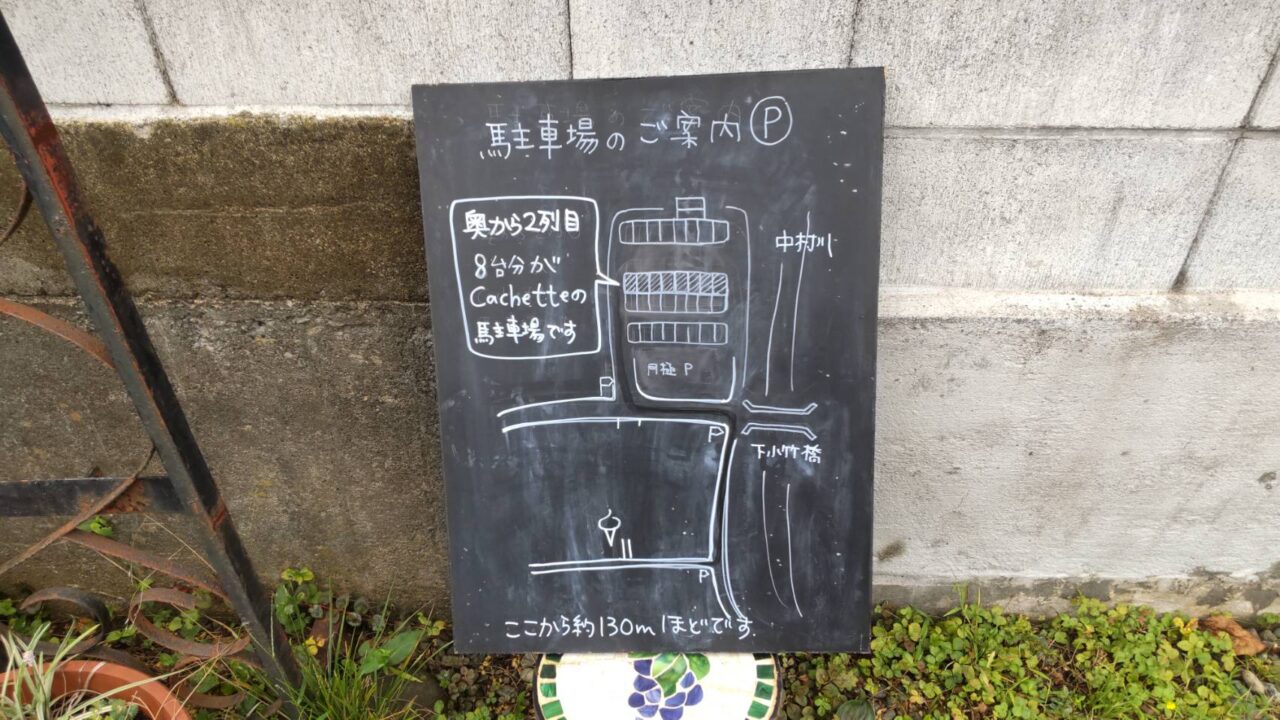 駐車場のご案内 P
奥から2列目
8台分が
Cachetteの
駐車場です
中村川
月極 P
P
P
下小竹橋
P
ここから約130mほどです.